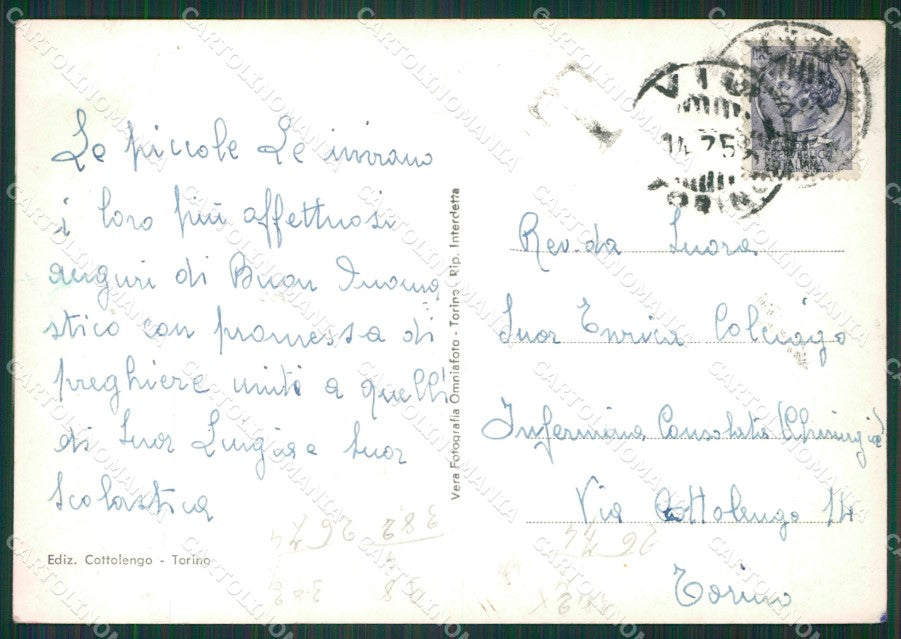 Le piccole Le inviano
i loro più affettuosi
auguri di Buon Onoma
stico con promessa di
preghiere unite a quelli
di Suor Luigia e Suor
Scolastica
Ediz. Cottolengo - Torino
Vera Fotografia Omniafoto - Torino - Rip. Interdetta
T
14.7.59
TORINO
Rev.da Suora
Suor Enrica Colciago
Infermeria Consolata (Chirurgia)
Via Cottolengo 14
Torino
38,2 26 44
26 44
CARTOLINOMANIA